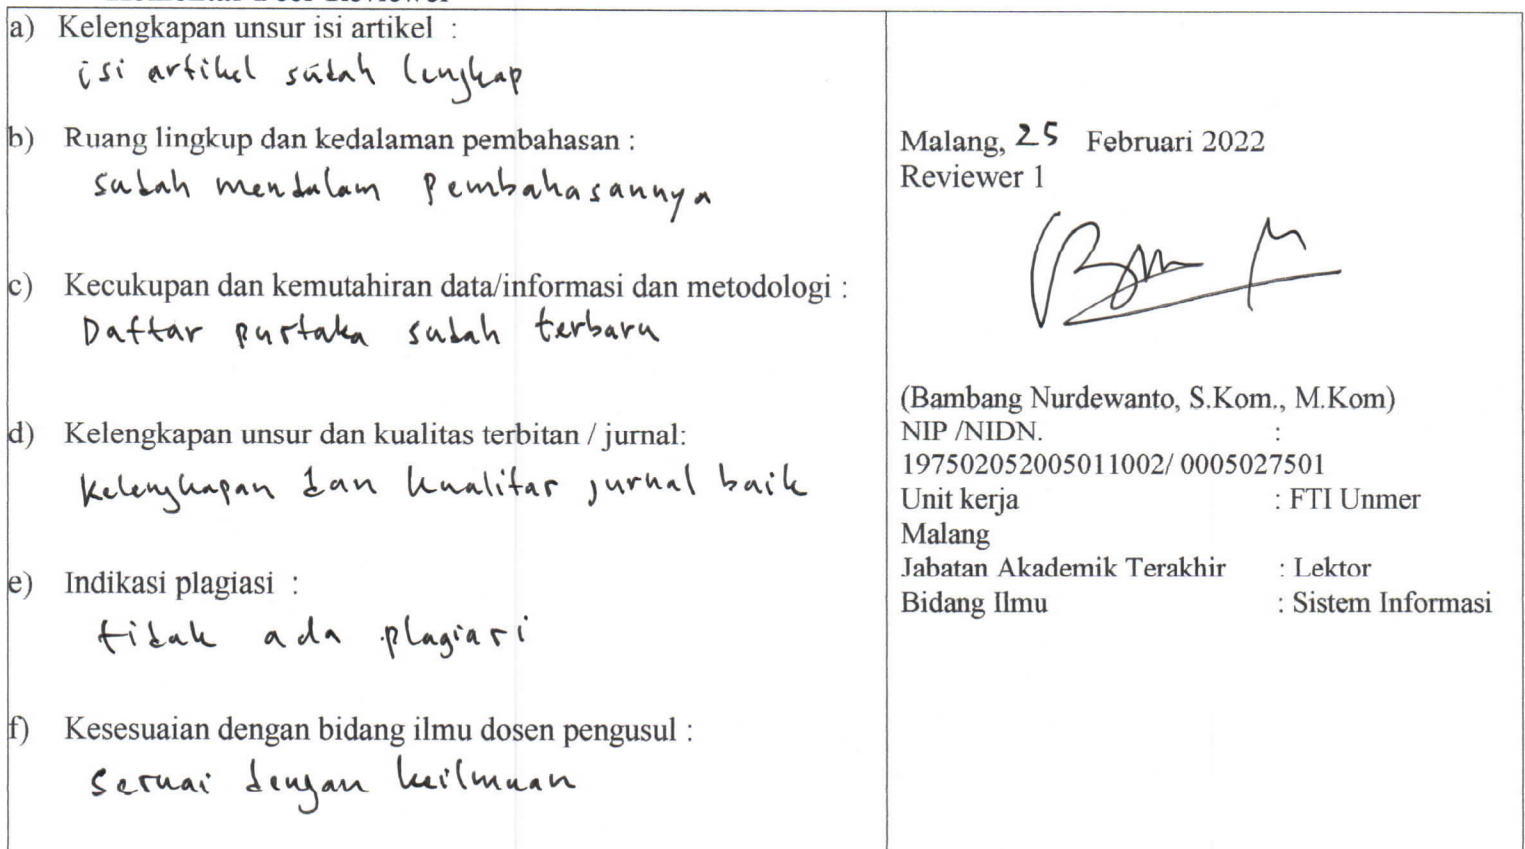 a) Kelengkapan unsur isi artikel :
isi artikel sudah lengkap
b) Ruang lingkup dan kedalaman pembahasan :
sudah mendalam pembahasannya
c) Kecukupan dan kemutahiran data/informasi dan metodologi :
Daftar pustaka sudah terbaru
d) Kelengkapan unsur dan kualitas terbitan / jurnal:
Kelengkapan dan kualitas jurnal baik
e) Indikasi plagiasi :
tidak ada plagiasi
f) Kesesuaian dengan bidang ilmu dosen pengusul :
sesuai dengan keilmuan
Malang, 25 Februari 2022
Reviewer 1
(Bambang Nurdewanto, S.Kom., M.Kom)
NIP /NIDN. :
197502052005011002/ 0005027501
Unit kerja : FTI Unmer
Malang
Jabatan Akademik Terakhir : Lektor
Bidang Ilmu : Sistem Informasi